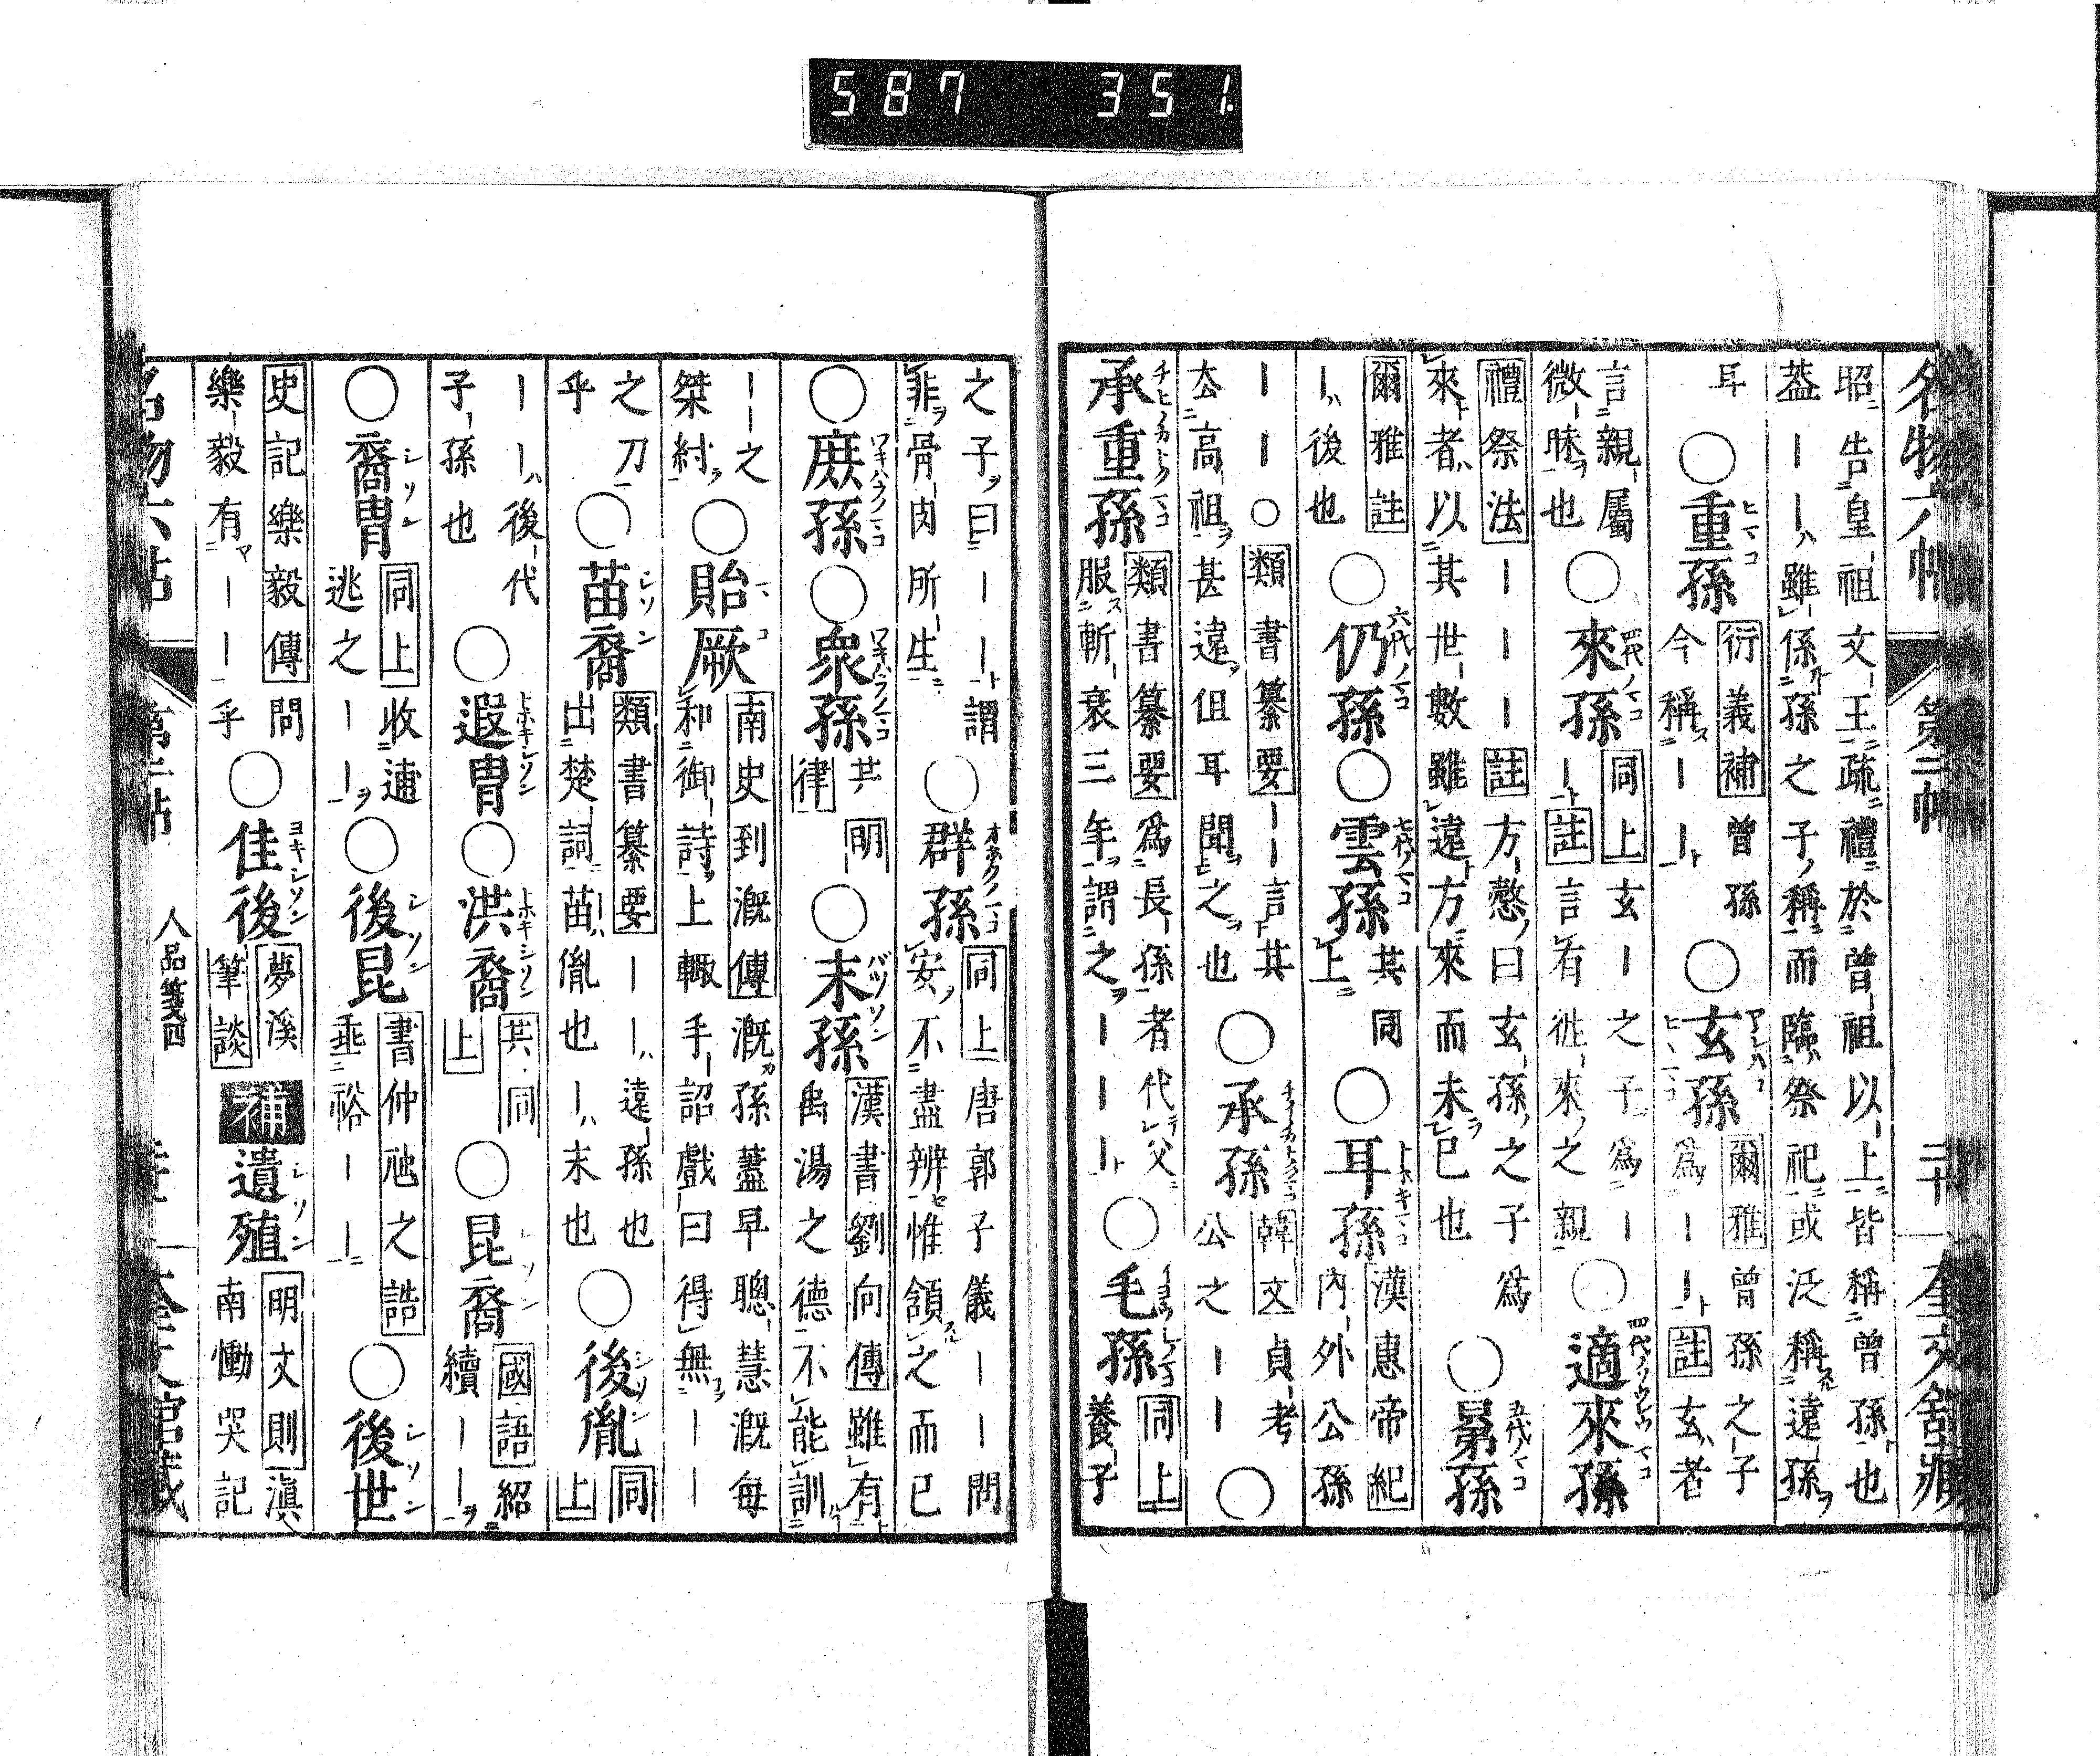 名物六帖 第二帖 二十 奎文館藏
昭告皇祖文王疏禮於曾祖以上皆稱曾孫也
蓋――雖係孫之子稱而臨祭祀或泛稱遠孫
耳○重孫 衍義補曾孫今稱――○玄孫 爾雅曾孫之子爲――註玄者
言親屬微昧也○來孫 同上玄―之子爲――註言有徃來之親○適來孫
禮祭法―――註方愨曰玄孫之子爲來者以其世數雖遠方來而未已也○晜孫
爾雅註―後也○仍孫○雲孫 共同上○耳孫 漢惠帝紀內外公孫
――○類書纂要――言其去高祖甚遠但耳聞之也○承孫 韓文貞考公之――○
承重孫 類書纂要爲長孫者代父服斬衰三年謂之―――○毛孫 同上養子
之子曰――謂非骨肉所生○群孫 同上唐郭子儀――問安不盡辨惟頷之而已
○庶孫○衆孫 共明律○末孫 漢書劉向傳雖有禹湯之德不能訓
――之桀紂○貽厥 南史到漑傳漑孫藎早聰慧漑每和御詩上輙手詔戲曰得無――
之刀乎○苗裔 類書纂要――遠孫也出楚詞苗胤也―末也○後胤 同上
――後代子孫也○遐冑○洪裔 共同上○昆裔 國語紹續――
○裔冑 同上收逋逃之――○後昆 書仲虺之誥垂裕――○後世
史記樂毅傳問樂毅有――乎○佳後 夢溪筆談 補遺殖 明文則滇南慟哭記
人品箋四